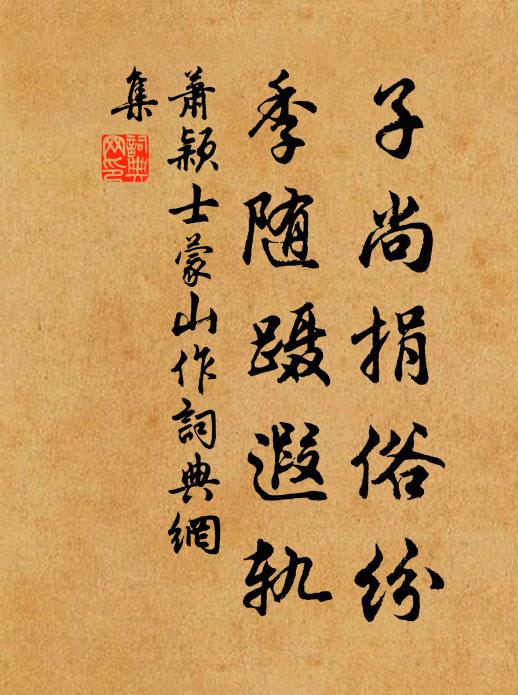 子尚捐俗纷
季随蹑遐轨
萧颖士蒙山作詞典網
集
詞典
网印